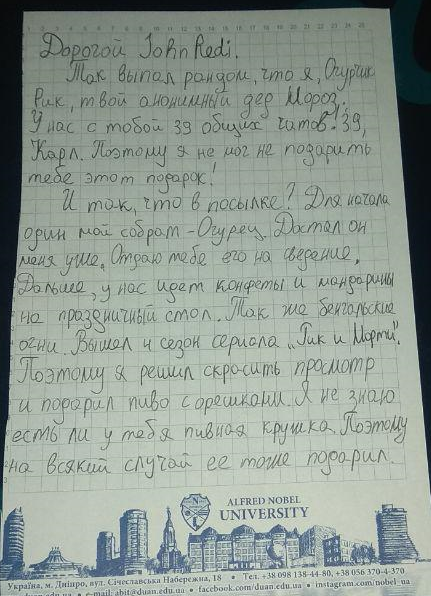 Дорогой John Redi.
Так выпал рандом, что я, Огурчик
Рик, твой анонимный дед Мороз.
У нас с тобой 39 общих чатов! 39,
Карл. Поэтому я не мог не подарить
тебе этот подарок!
И так, что в посылке? Для начала
один мой собрат - Огурец. Достал он
меня уже. Отдаю тебе его на сьедение.
Дальше, у нас идет конфеты и мандарины
на праздничный стол. Так же бенгальские
огни. Вышел 4 сезон сериала "Рик и Морти".
Поэтому я решил скрасить просмотр
и подарил пиво с орешками. Я не знаю
есть ли у тебя пивная кружка. Поэтому
на всякий случай ее тоже подарил.
ALFRED NOBEL
UNIVERSITY
Україна, м. Дніпро, вул. Січеславська Набережна, 18 • Тел. +38 098 138-44-80, +38 056 370-4-370
• e-mail: abit@duan.edu.ua • facebook.com/duan.edu.ua • instagram.com/nobel_ua